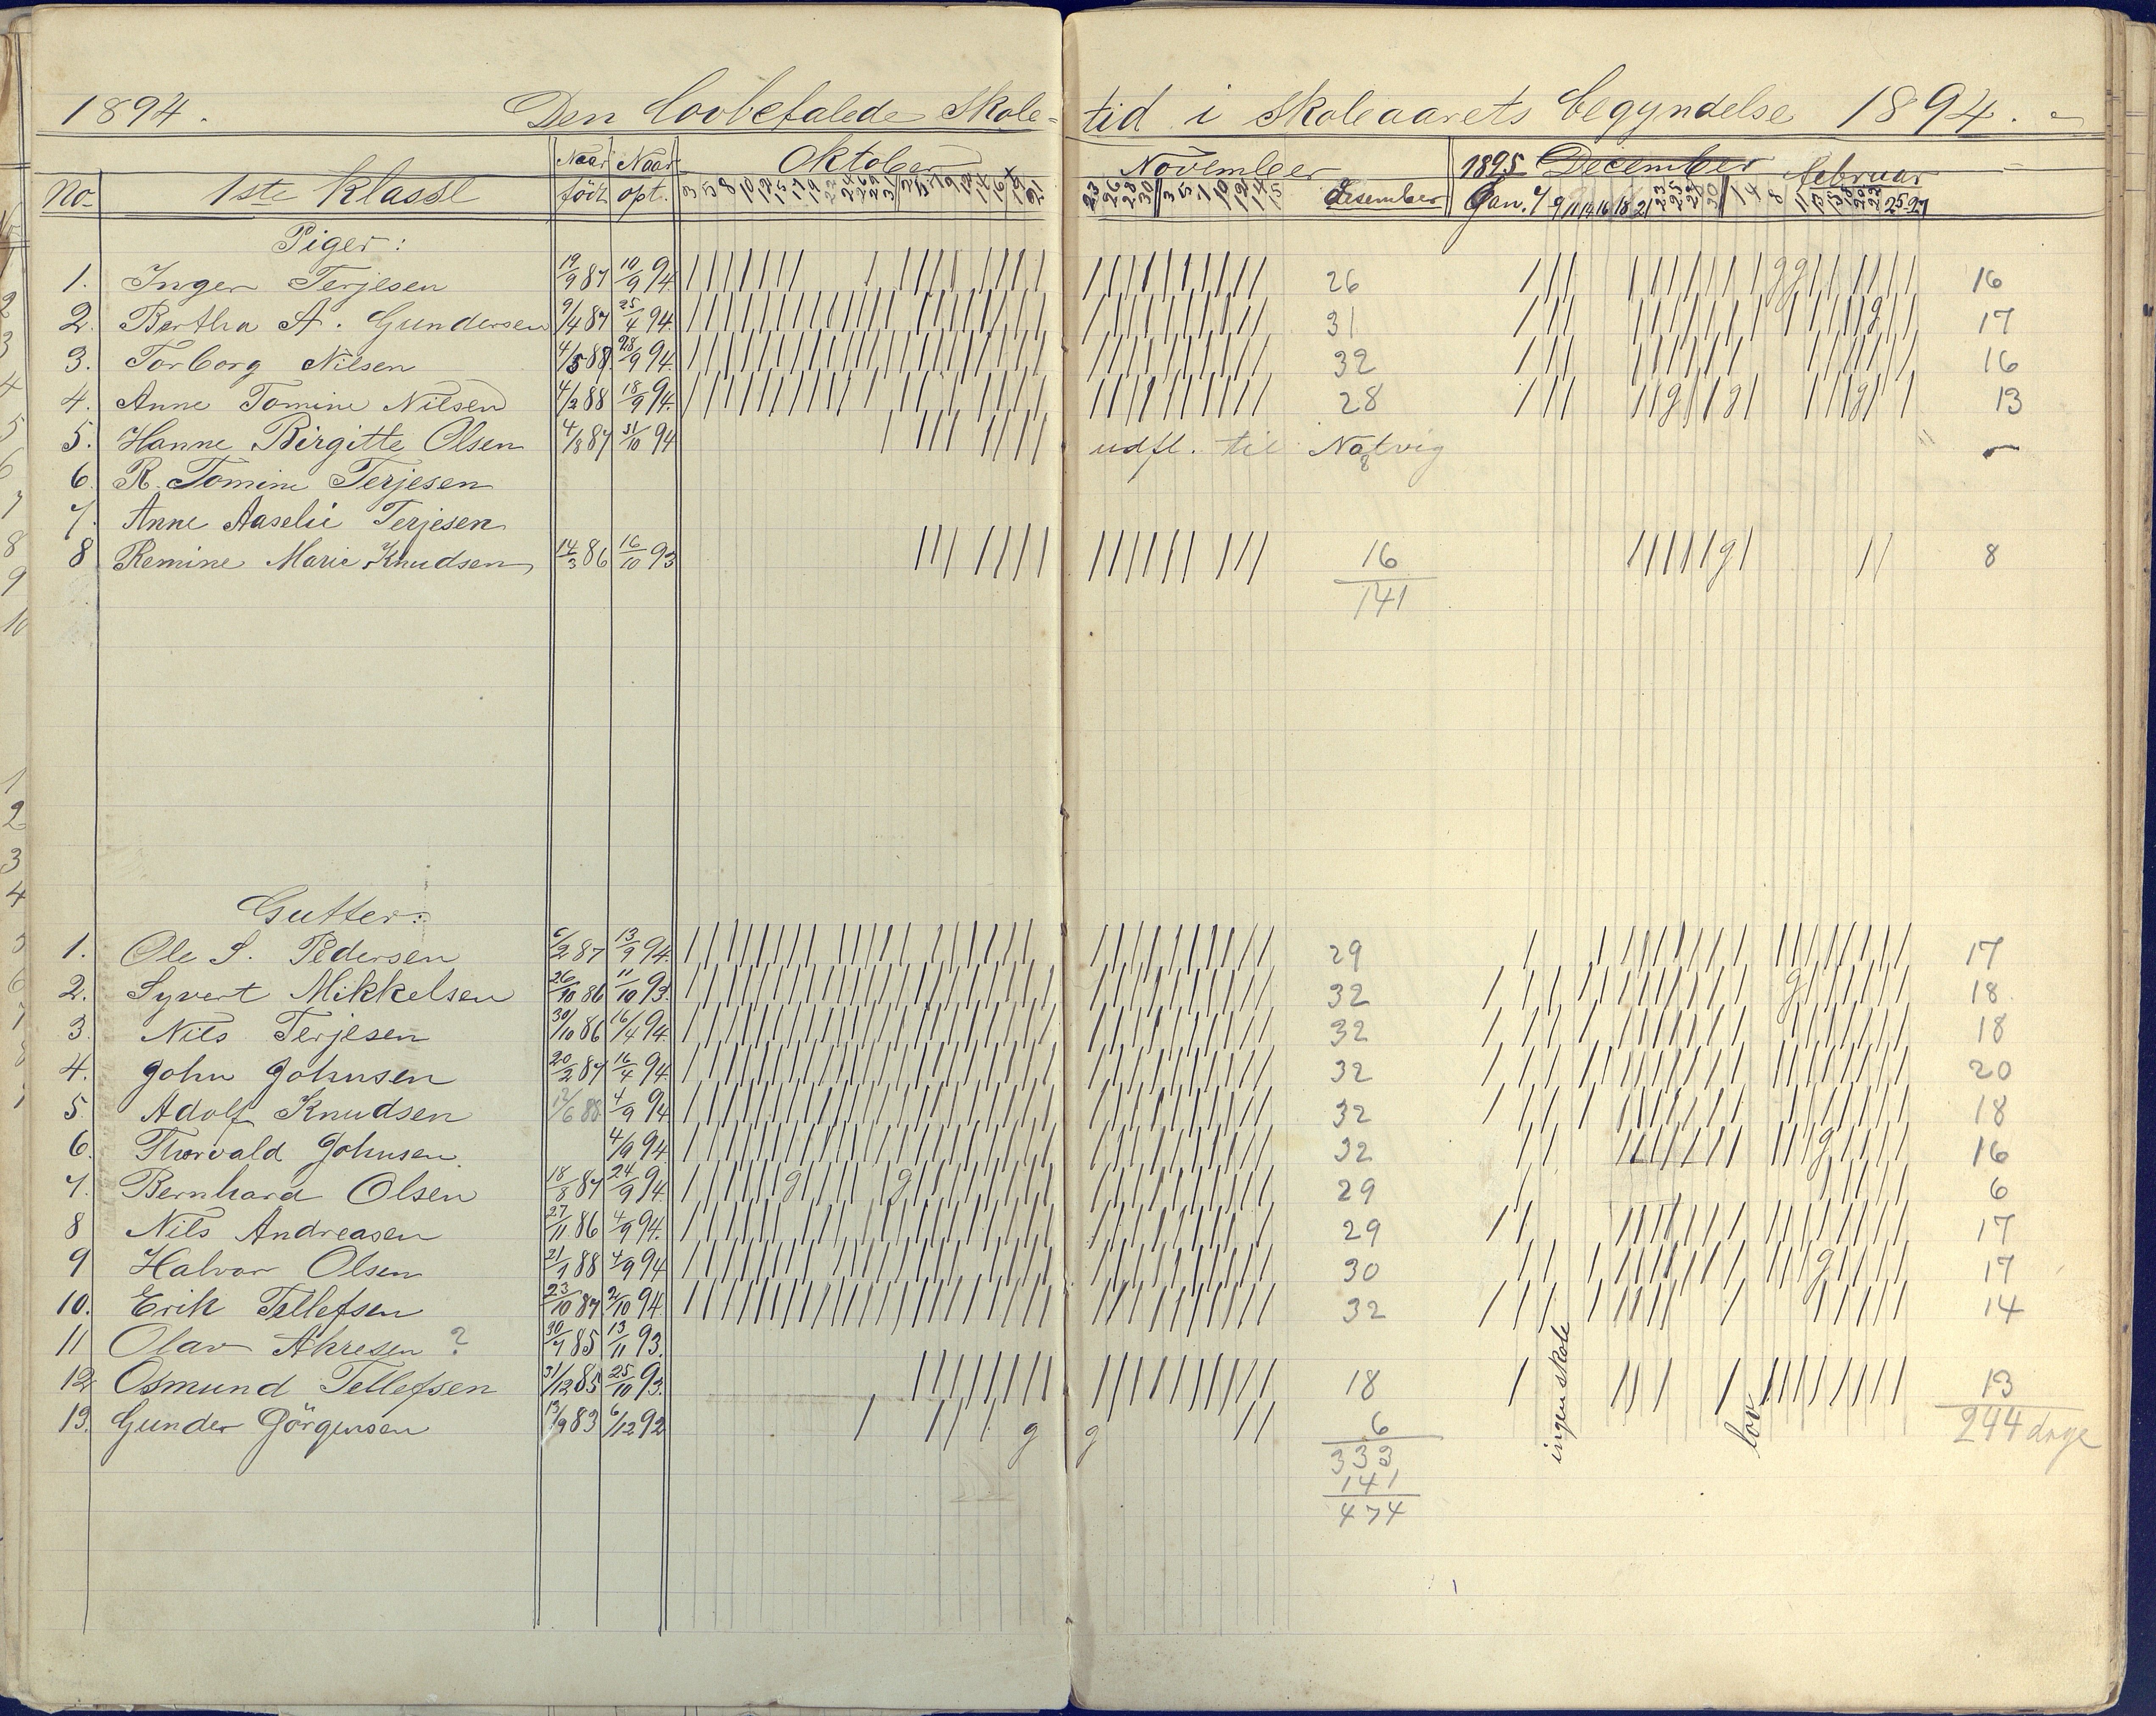 1894. Den lovbefalede Skole-
tid i Skoleaarets begyndelse 1894.
No 1ste Klasse Naar født Naar opt. Oktober
3 5 8 10 12 15 17 19 22 24 26 29 31 2 5 7 9 12 14 16 19 21
November desember 1895 December februar
23 26 28 30 3 5 7 10 12 14 15 Jan. 7 9 11 14 16 18 21 23 25 28 30 1 4 8 11 13 15 18 20 22 25 27
Piger:
1. Inger Terjesen 19/9 87 10/9 94. 26 16
2. Bertha A. Gundersen 9/4 87 25/4 94. 31 17
3. Torborg Nilsen 4/5 88 28/9 94. 32 16
4. Anne Tomine Nilsen 4/2 88 18/9 94. 28 13
5. Hanne Birgitte Olsen 4/8 87 31/10 94 udfl. til Natvig 8 " -
6. R. Tomine Terjesen
7. Anne Aaselie Terjesen
8 Remine Marie Knudsen 14/3 86 16/10 93 16 8
141
Gutter:
1. Ole S. Pedersen 6/2 87 13/9 94. 29 17
2. Syvert Mikkelsen 26/10 86 11/10 93. 32 18
3. Nils Terjesen 30/10 86 16/4 94. 32 18
4. John Johnsen 20/2 87 16/4 94. 32 20
5. Adolf Knudsen 12/6 88 4/9 94. 32 18
6. Thorvald Johnsen. 4/9 94. 32 16
7. Bernhard Olsen 18/8 87 24/9 94. 29 6
8 Nils Andreasen 27/11 86 4/9 94. 29 17
9 Halvor Olsen 21/1 88 4/9 94 30 17
10. Erik Tellefsen 23/10 87 2/10 94. 32 14
11 Olav Akresen ? 30/7 85 13/11 93.
12 Osmund Tellefsen 31/12 85 25/10 93. 18 13
13. Gunder Jörgensen 13/9 83 6/12 92 g g 6 244 dage
ingen skole
lov
333
141
474